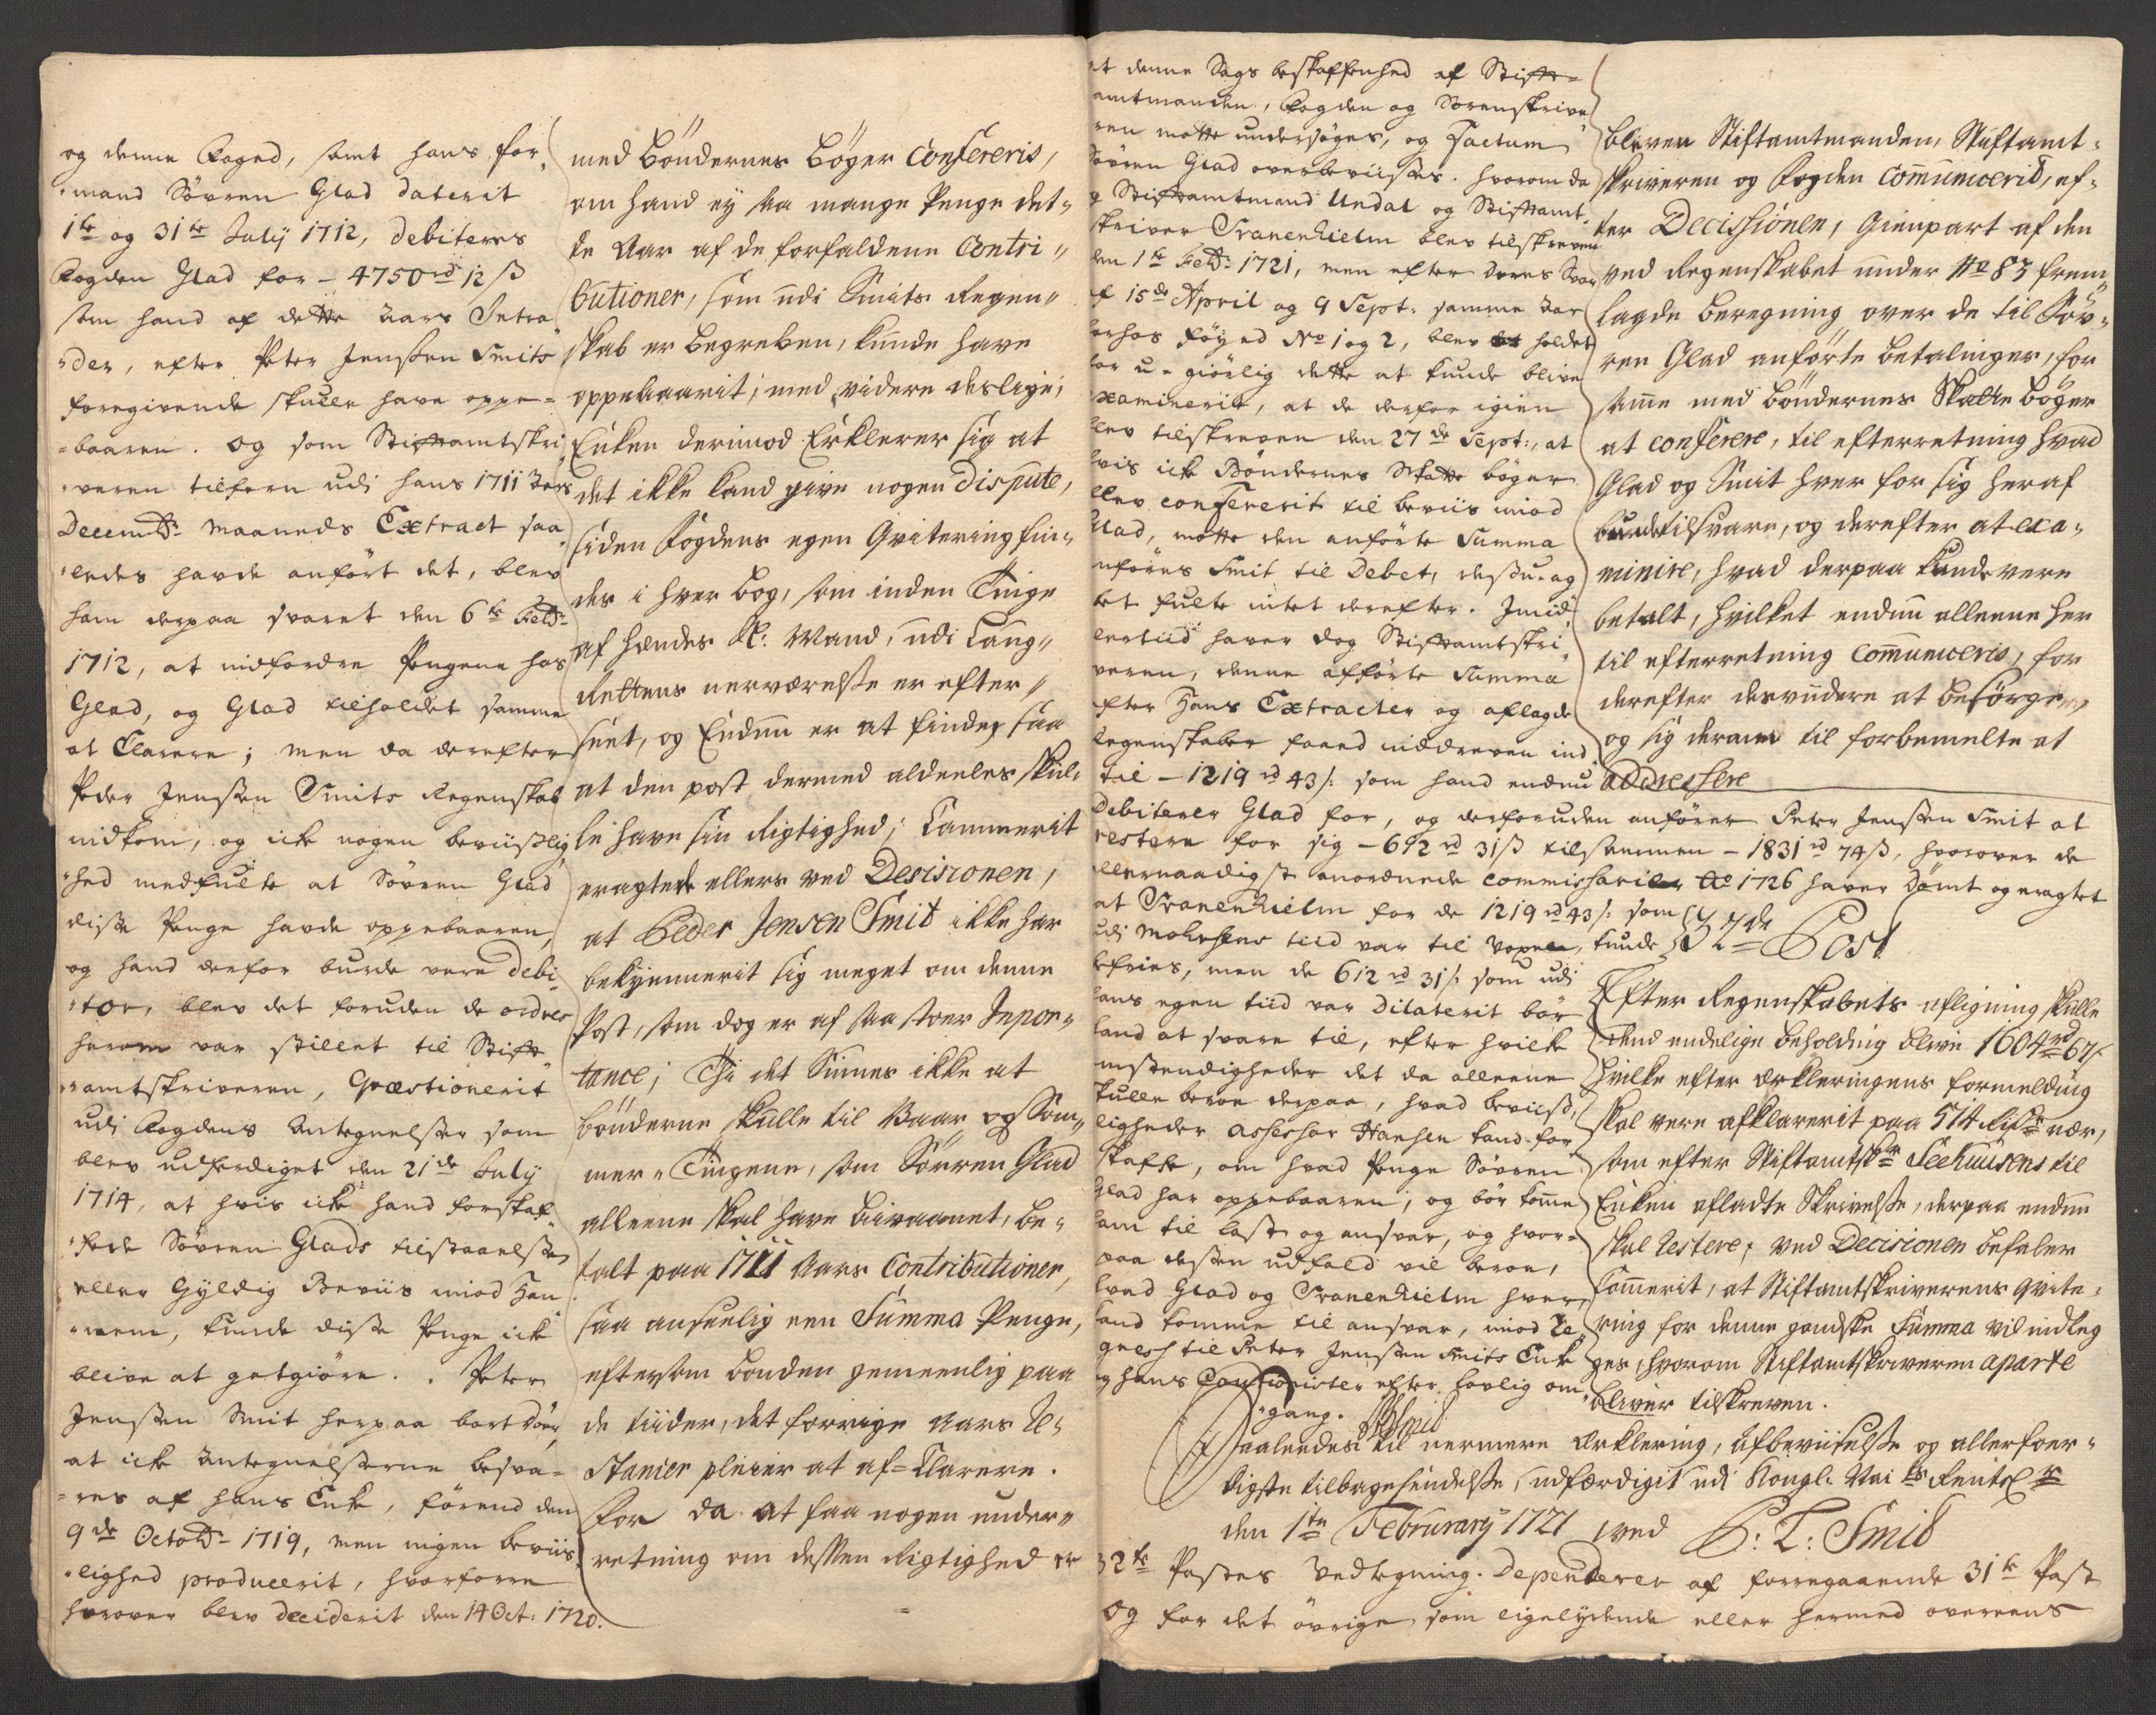 og denne Foged, samt hans for¬
mand Søvren Glad daterit
1te og 31te July 1712, debiteres
Fogden Glad for - 4750 rd 12 ß
som hand af dette Aars Intra¬
der, efter Peter Jenssen Smits
foregivende skulle have oppe¬
baaren. og som Stiftamtskri¬
veren tilforn udi hans 1711 Aars
Decembr. maaneds Extract saa¬
ledes havde anført det, blev
ham derpaa svaret den 6te Febr.
1712, at indfordre Pengene hos
Glad, og Glad tilholdet samme
at Clarere; men da derefter
Peder Jenssen Smits Regenskab
indkom, og icke nogen beviislig¬
hed medfulte at Søvren Glad
disse Penge havde oppebaaren,
og hand derfor burde vere debi¬
tor, blev det foruden de ordres
herom var stillet til Stift¬
amtskriveren, Qvæstionerit
udi Fogdens Antegnelsser som
blev udferdiget den 21de July
1714, at hvis icke hand forskaf¬
fede Søvren Glads tilstaaelsse,
eller Gyldig Beviis imod Ham
nem, kunde disse Penge icke
blive at godtgiøre. Peter
Jenssen Smit herpaa bortdøer,
at icke Antegnelsserne besva¬
res af hans Enke, førend den
9de Octobr. 1719, men ingen beviis¬
lighed producerit, hvorforre
herover blev decideret den 14 Oct: 1720.
med Bøndernes Bøger Confereris,
om hand ey saa mange Penge det¬
te Aar af de forfaldene Contri¬
butioner, som udi Smits Regen¬
skab er begreben, kunde have
oppebaarit; med videre deslige;
Enken derimod Erklerer sig at
det ikke kand give nogen Dispute,
siden Fogdens egen Qvitering fin¬
des i hver bog, som inden Tinge
af hendes Sl: Mand, udi Laug¬
Rettens nerværelsse er efter¬
seet, og Endnu er at finde, saa
at den post dermed aldeeles skul¬
le have sin Rigtighed; Cammerit
eragtede ellers ved Desisionen,
at Peder Jensen Smit ikke har
bekymmerit sig meget om denne
Post, som dog er af saa stoer Inpor¬
tance; Thi det Siunes ikke at
bønderne skulle til Vaar og Som¬
mer-Tingene, som Søvren Glad
alleene skal have biivaanet, be¬
talt paa 1711 Aars Contributioner,
saa anseelig een Summa Penge,
eftersom bonden gemeenlig paa
de tiider, det forrige Aars Re¬
stantzer pleier at af-Clarere.
For da at faa nogen under¬
retning om dessen Rigtighed er
at denne Sags beskaffenhed af Stift-
amtmanden, Fogden og Sorenskrive
ren motte undersøges, og Factum
Søvren Glad overbeviisses. hvorom da
og Stiftamtmand Undal og Stiftamt¬
skriver Tranenhielm blev tilskreven
den 1te Febr: 1721, men efter deres Svar
af 15de April og 9 Sept: samme Aar
herhos føyed No 1 og 2, blev holdet
for u-giørlig dette at kunde blive
examinerit, at de derfor igien
blev tilskreven den 27de Sept:, at
hvis icke Bøndernes Skatte bøger
blev confererit til beviis imod
Glad, motte den anførte Summa
anføres Smit til Debet, dessu-ag
tet fulte intet derefter. Imid¬
lertiid haver dog Stiftamtskri¬
veren, denne afførte Summa
efter Hans Extracter og aflagde
Regenskaber faaed inddreven ind
til - 1219 rd 43 ß: som hand endnu
Debiterer Glad for, og derforuden anfører Peter Jenssen Smit at
restere for sig - 612 rd 31 ß tilsammen - 1831 rd 74 ß, hvorover de
allernaadigst anordnede Commissarier Ao 1726 haver Dømt og eragtet
at Tranenhielm for de 1219 rd 43 ß: som
udi Mohrsens tiid var til Voxen, kunde
befries, men de 612 rd 31 ß som udi
hans egen tiid var dilaterit bør
hand at svare til, efter hvilke
omstendigheder det da alleene
skulle beroe derpaa, hvad beviiss¬
ligheder Assessor Hansen kand for¬
skaffe, om hvad Penge Søvren
Glad har oppebaaren, og bør komme
ham til last og ansvar, og hvor¬
paa dessen udfald vil beroe,
hvad Glad og Tranenhielm hver
kand komme til ansvar, imod Re¬
gress til Peter Jenssen Smits Enke
og hans Cautionister efter lovlig om¬
gang. Smid
bleven Stiftamtmanden, Stiftamt¬
skriveren og Fogden Communicerit, ef¬
ter Decissionen, Gienpart af den
ved Regenskabet under No 83 frem¬
lagde beregning over de til Søv¬
ren Glad anførte betalinger, for
same med Bøndernes Skatte bøger
at conferere, til efterretning hvad
Glad og Smit hver for sig heraf
burde tilsvare, og derefter at exa¬
minire, hvad derpaa kunde vere
betalt, hvilket endnu alleene her
til efterretning Communiceris, for
derefter desviidere at besørge,
og sig derom til forbemelte at
addressere
32de Post
Efter Regenskabets afligning skulle
dend endelige beholding blive 1604 rd 67 ß
hvilke efter erkleringens formelding
skal vere afklarerit paa 514 Rdr nær,
som efter Stiftamtskr Seehuusens til
Enken afladte Skrivelsse, derpaa endnu
skal restere; ved Decisionen befaler
Camerit, at Stiftamtskriverens qvite¬
ring for denne gandske Summa vil indleg
ges, hvorom Stiftamtskriveren aparte
bliver tilskreven.
Saaleedes til nermere Erklering, Afbeviiselsse og allerfoer¬
ligste tilbagesendelsse, udfærdigit udi Kongl: Mai ts RenteCr
den 1te Februrary 1721 ved P: T: Smid
32te Postes Vedtegning. Dependerer af forregaaende 31te Post
og for det øvrige som ligelydende eller hermed overeens